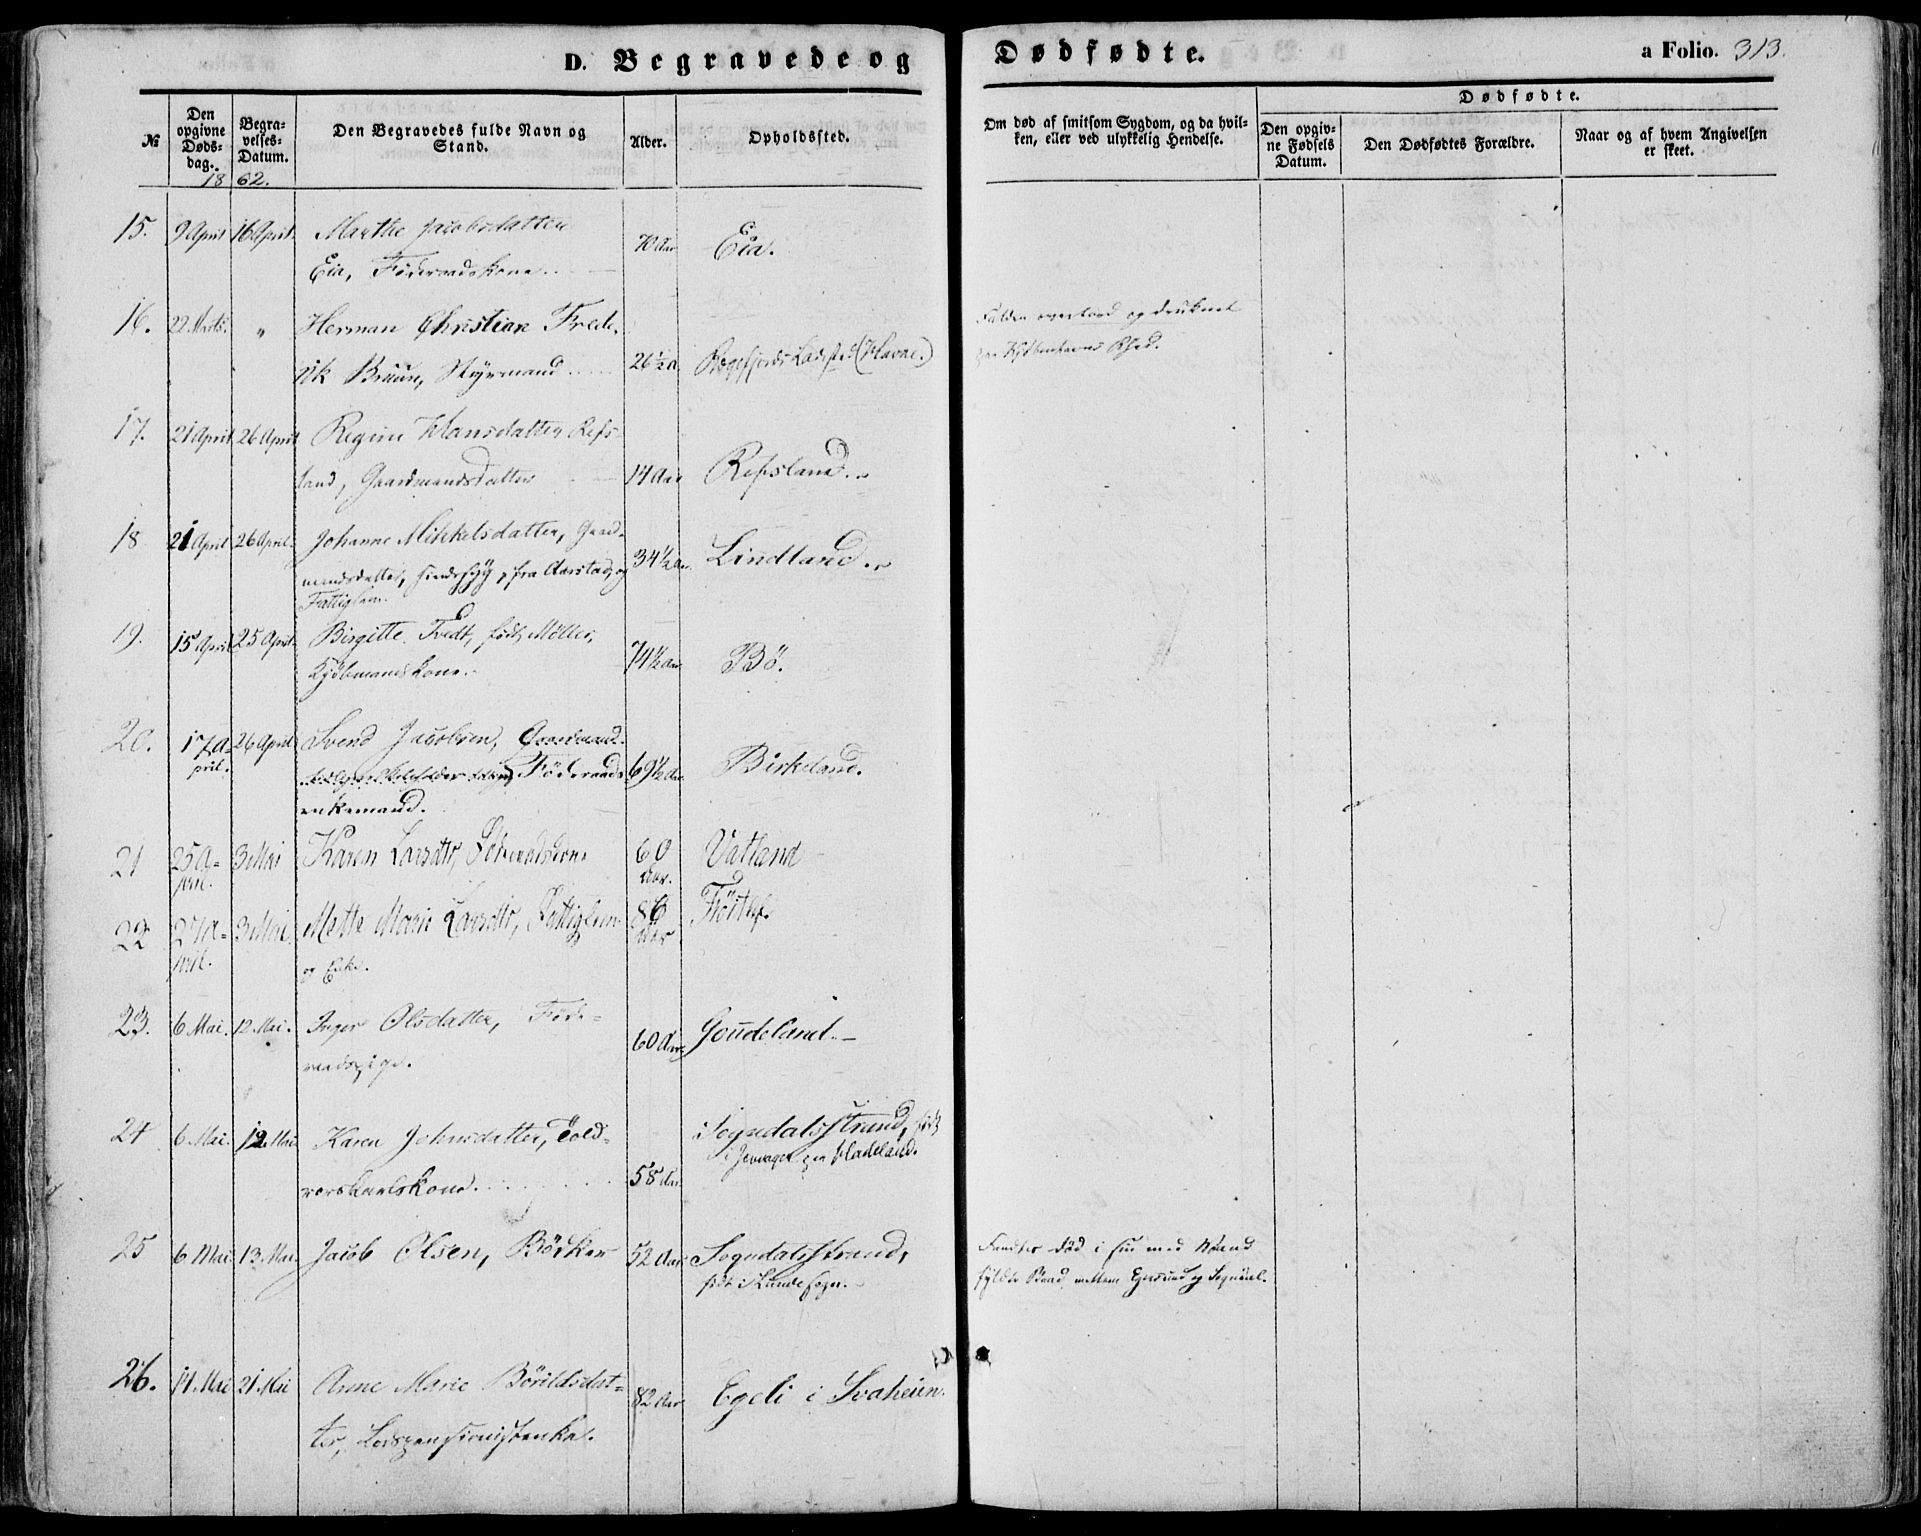 D. Begravede og Dødfødte. a Folio. 313.
Dødfødte.
№
Den opgivne Døds-dag.
Begra-velses-Datum.
Den Begravedes fulde Navn og Stand.
Alder.
Opholdssted.
Om død af smitsom Sygdom, og da hvil-
ken, eller ved ulykkelig Hendelse.
Den opgiv-ne Fødsels Datum.
Den Dødfødtes Forældre.
Naar og af hvem Angivelsen er skeet.
1862.
15. 9 April 16 April. Marthe Jacobsdatter
Eia, Föderaadskone. 70 Aar Eia.
16. 22 Marts. " Herman Christian Frede-
rik Bruun, Styrmand 26 1/2 A. Rægefjords Ladested (Havne.)
Falden overbord og druknet
paa Kjøbenhavns Rhed.
17. 21 April 26 April Regine Hansdatter Refs-
land, Gaardmandsdatter 14 Aar Refsland.
18 21 April 26 April. Johanne Mikkelsdatter, Gaard-
mandsdatter, sindssyg, fra Aarstad, og
Fattiglem. 34 1/2 Aar Lindland.
19. 15 April 25 April. Birgitte Tvedt, født Møller,
Kjöbmandskone. 74 1/2 Aar Bö.
20. 17 A-
pril. 26 April Svend Jacobsen, Gaardmand
Föderaads
enkemand. 69 1/2 Aar Birkeland.
21 25 A-
pril. 3 Mai Karen Larsdtr, Föderaadskone 60
Aar. Vatland
22 27 A-
pril. 3 Mai. Mette Marie Larsdtr, Fattiglem
og Enke. 86
Aar
23. 6 Mai. 12 Mai. Inger Olsdatter, Föde-
raadspige. 60 Aar Goudeland.
24 6 Mai. 12 Mai Karen Johnsdatter, Told-
rorskarlskone. 58 Aar Sogndalsstrand, født
i Jevnager paa Hadeland.
25 6 Mai 13 Mai Jacob Olsen, Börker 52 Aar Sogndalsstrand,
født i Lunde Sogn.
Fandtes död i sin med Vand
fyldte Baad mellem Egersund og Sogndal.
26. 14 Mai 21 Mai Anne Marie Börildsdat-
ter, Lodspensionistenke. 82 Aar Egeli i Svaheien.